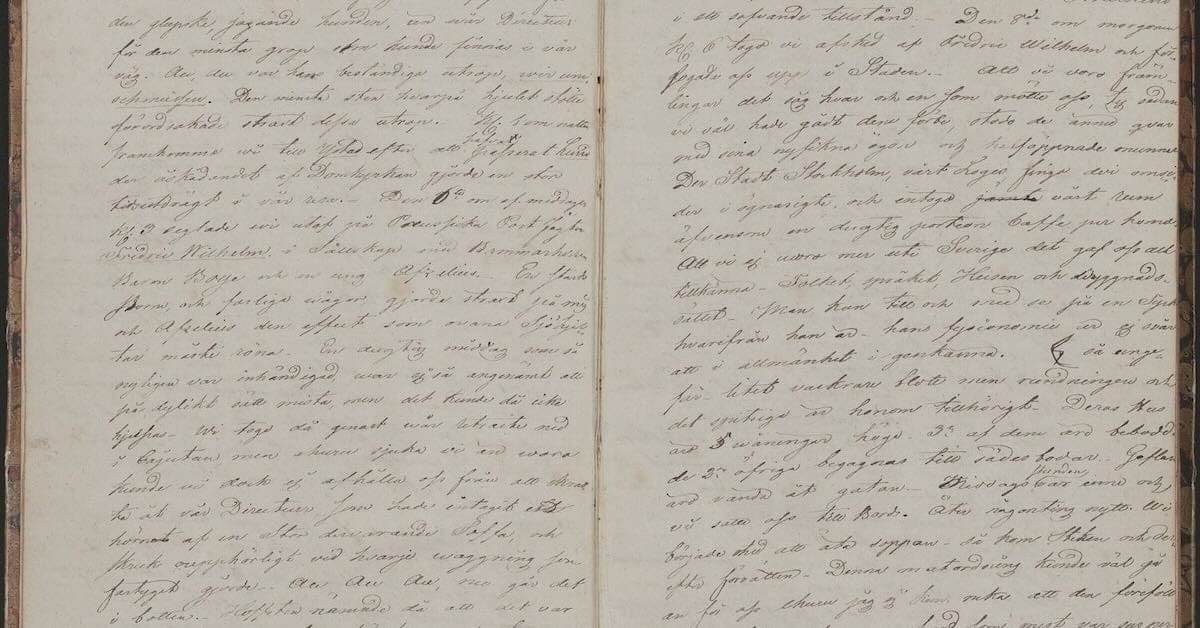 den glupske, jagande hunden, en wår Directeur
för den minsta grop som kunde finnas i vår
väg. Au, du var hans beständiga utrop, wir um
schmeissen. Den minsta sten hvarpå hjulet stötte
förordsakade strart dessa utrop. Kl. 1 om natten
framkomme wi till Ystad efter att hafva Passerat Lund
der åskådandet af Domkyrkan gjorde en stor
i vår resa. Den 6te om af middagen
Kl. 3 seglade wi utaf på Preussiska Post Jagten
Fridric Wilhelm, i Sällskap med
Baron Boije och en ung Afzelius. En stark
storm, och farliga wågor, gjorde strart på mig
och Afzelius den effect som ovana Sjöfar
tar måste röna. En dugtig middag som så
nyligen var inhändigad, war ej så angenämt att
på dylikt sätt mista, men det kunde då icke
hjelpas. Wi togo då genast wår retraite ned
i Cajutan men ehuru sjuka vi än wara
kunde wi dock ej afhålla oss från att skrat
ta åt vår Directeur som hade intagit ett
hörnet af en Stor Soffa, och
skrek oupphörligt vid hvarje waggning som
fartyget gjorde. Au Au Au, nu går det
i botten. nämnde då att det var
i ett sofvande tillstånd. Den 8de om morgonen
Kl. 6 togo vi afsked af Fridric Wilhelm och för
fogade oss upp i Staden. Att vi voro främ
lingar det såg hvar och en som mötte oss, ty sedan
vi väl hade gådt dem förbi, stodo de ännu qvar
med sina nyfikna ögon och halföppnade munnar
Der Stadt Stockholm, vårt Logis finge wi omsi
der i ögnasigte, och intogo jämte vårt rum
äfvensom en dugtig portion Caffe per homme
Att vi ej woro mer uti Sverige det gaf oss allt
tillkänna. Folket, språket, Husen och byggnads-
sättet. Man kan till och med se på en Tysk
hvarifrån han är. hans fysionomie är ej svår
att i allmänhet igenkänna. så unge-
fär litet vackrare blott men rundningen och
det spitsiga är honom tillhörigt. Deras Hus
äro 5 wåningar höga. 3ne af dem äro bebodd
de 2ne öfriga begagnas till sädesbodar. Geflar
äro vända åt gatan. Middagsstunden var inne och
vi satte oss till Bords. Åter någonting nytt. Wi
började med att äta soppan så kom Steken och der
efter förrätten. Denna matordning kunde väl gå
an för oss ehuru jag ej kan neka att den föreföll
som mest var